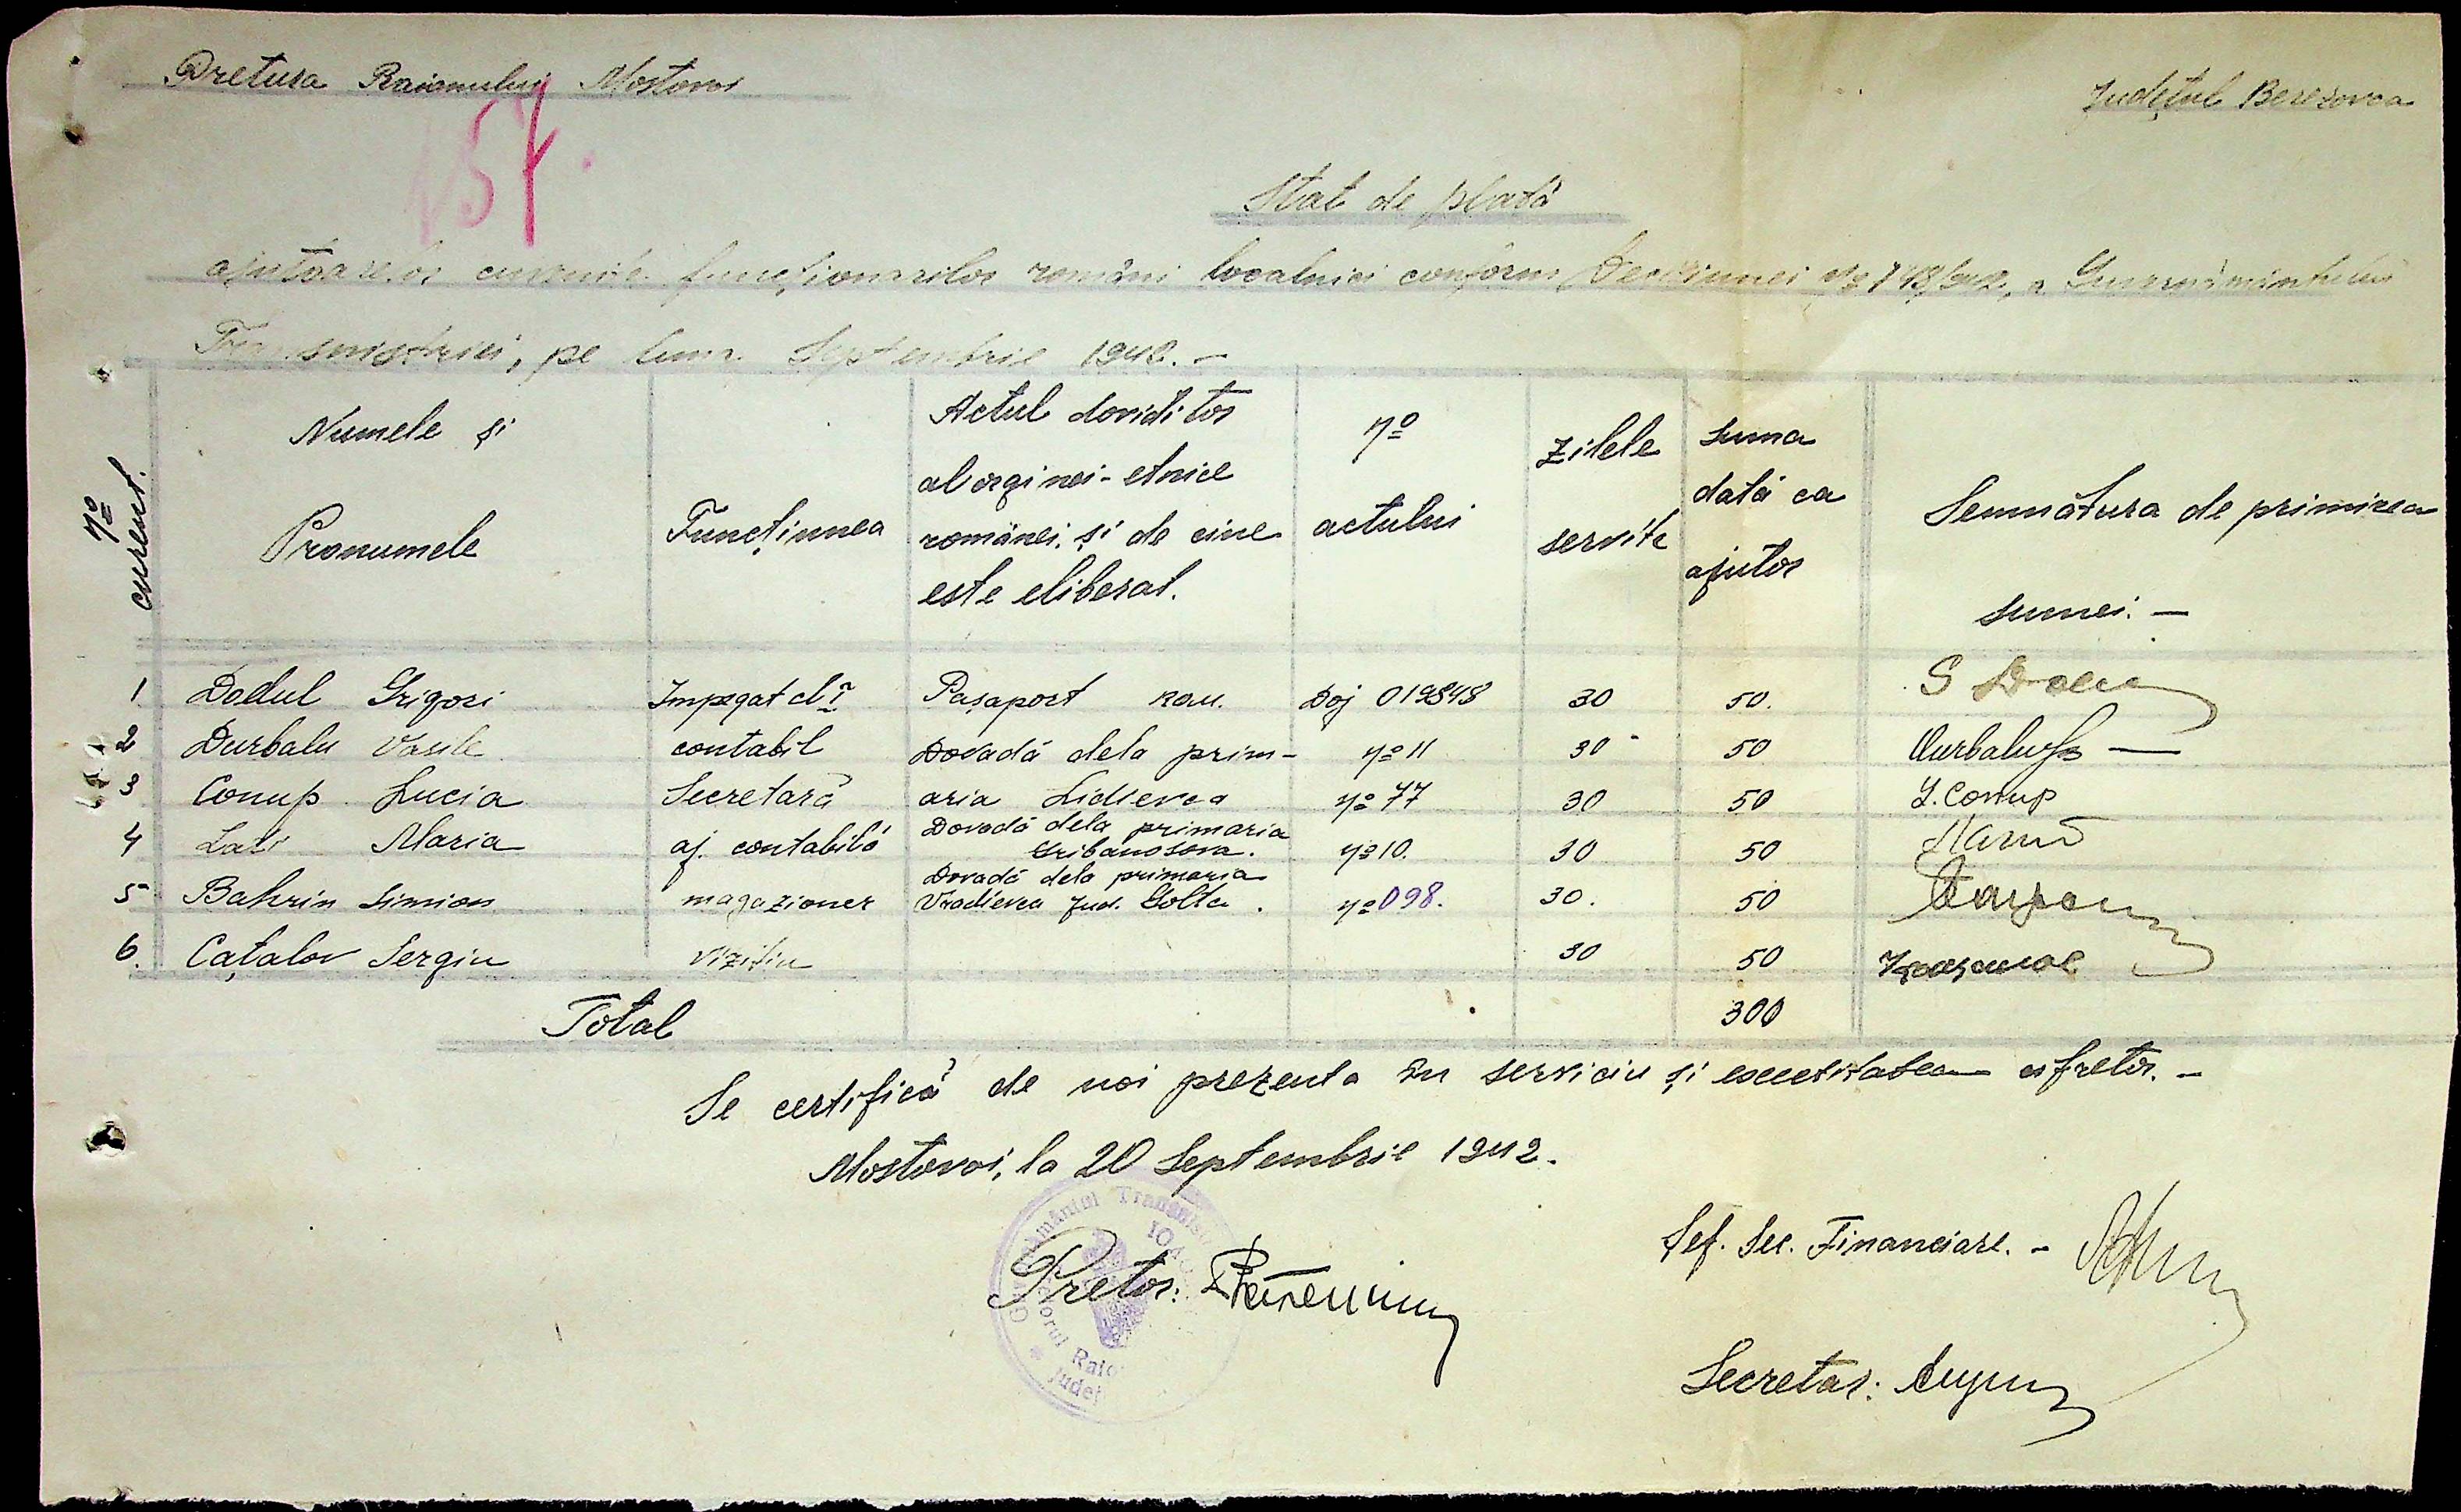 Pretura Raionului Mostovoi
Județul Berezovca
157.
Stat de plată
ajutoarelor cuvenite funcționarilor români localnici conform Deciziunei No 748/942, a Guvernământului
Transnistriei, pe luna Septembrie 1942. –
No curent.
Numele și Pronumele
Funcțiunea
Actul doviditor al orginei-etnice românei. și de cine este eliberat.
No actului
Zilele servite
Suma dată ca ajutor
Semnătura de primirea sumei. –
1 Dodul Grigori Impegat cl I Pașaport rom. Doj 019848 30 50.
2 Durbalu Vasile contabil Dovadă dela prim- No 11 30 50 Durbalu
3 Conup Lucia Secretară aria Lidievca No 77 30 50 L. Conup
4 Lati Maria aj. contabilă Dovadă dela primaria Gribanosova. No 10. 30 50
5 Bahrin Simion magazioner Dovadă dela primaria Vradievca Jud. Golta. No 098. 30. 50
6. Cațalov Sergiu vizitiu 30 50
Total 300
Se certifică de noi prezenta în serviciu și escetitatea –
Mostovoi, la 20 Septembrie 1942.
Guvernământul Transnis
Raio
Județ
Pretor:
Șef. Sec. Financiare. –
Secretar: